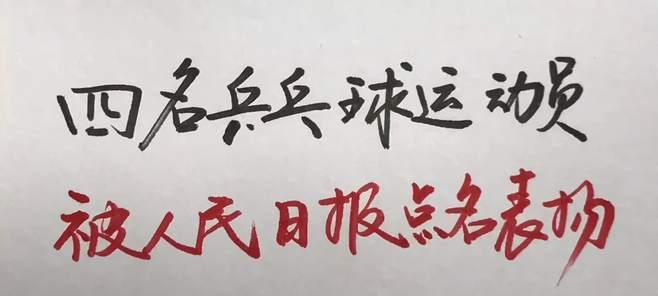 四名兵兵球运动员
被人民日报点名表扬